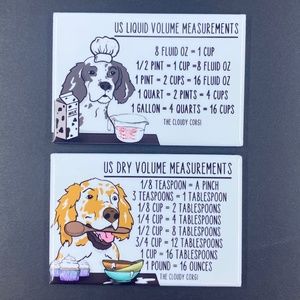 US LIQUID VOLUME MEASUREMENTS
8 FLUID OZ = 1 CUP
1/2 PINT = 1 CUP = 8 FLUID OZ
1 PINT = 2 CUPS = 16 FLUID OZ
1 QUART = 2 PINTS = 4 CUPS
1 GALLON = 4 QUARTS = 16 CUPS
THE CLOUDY CORGI
US DRY VOLUME MEASUREMENTS
1/8 TEASPOON = A PINCH
3 TEASPOONS = 1 TABLESPOON
1/8 CUP = 2 TABLESPOONS
1/4 CUP = 4 TABLESPOONS
1/2 CUP = 8 TABLESPOONS
3/4 CUP = 12 TABLESPOONS
1 CUP = 16 TABLESPOONS
1 POUND = 16 OUNCES
THE CLOUDY CORGI